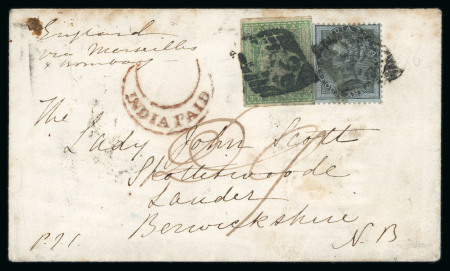 England
via Marseilles
& Bombay
INDIA PAID
The Lady John Scott
Lauder
Berwickshire
N.B